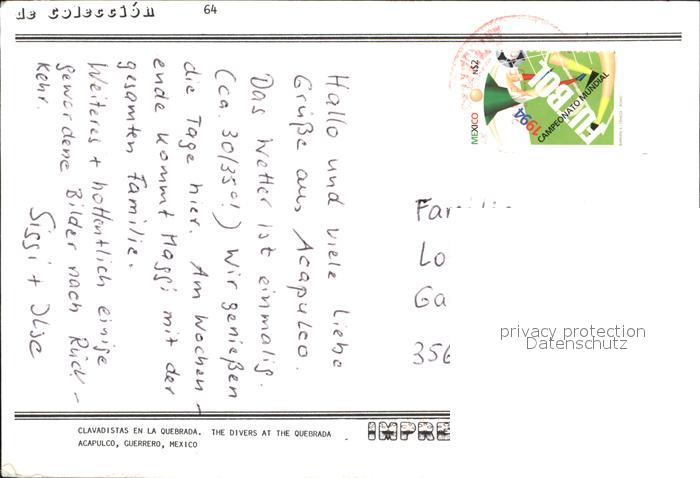 de Colección
64
Hallo und viele liebe
Grüße aus Acapulco.
Das Wetter ist einmalig.
(ca. 30/35°!) Wir genießen
die Tage hier. Am Wochen-
ende kommt Maggi mit der
gesamten Familie.
Weiteres + hoffentlich einige
gewordene Bilder nach Rück-
kehr.
Sissi + Ilse
MEXICO N$2
1994
FUTBOL
CAMPEONATO MUNDIAL
Familie
Lo
Ga
356
privacy protection
Datenschutz
CLAVADISTAS EN LA QUEBRADA. THE DIVERS AT THE QUEBRADA
ACAPULCO, GUERRERO, MEXICO
IMPRE